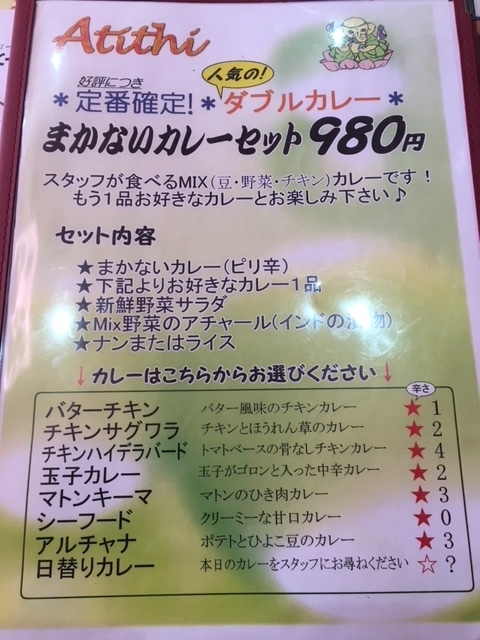 Atithi
好評につき
人気の!
*定番確定!*ダブルカレー*
まかないカレーセット 980円
スタッフが食べるMIX(豆・野菜・チキン)カレーです!
もう1品お好きなカレーとお楽しみ下さい♪
セット内容
★まかないカレー(ピリ辛)
★下記よりお好きなカレー1品
★新鮮野菜サラダ
★Mix野菜のアチャール(インドの漬物)
★ナンまたはライス
↓カレーはこちらからお選びください↓
辛さ
バターチキン バター風味のチキンカレー ★1
チキンサグワラ チキンとほうれん草のカレー ★2
チキンハイデラバード トマトベースの骨なしチキンカレー ★4
玉子カレー 玉子がゴロンと入った中辛カレー ★2
マトンキーマ マトンのひき肉カレー ★3
シーフード クリーミーな甘口カレー ★0
アルチャナ ポテトとひよこ豆のカレー ★3
日替りカレー 本日のカレーをスタッフにお尋ねください ☆?